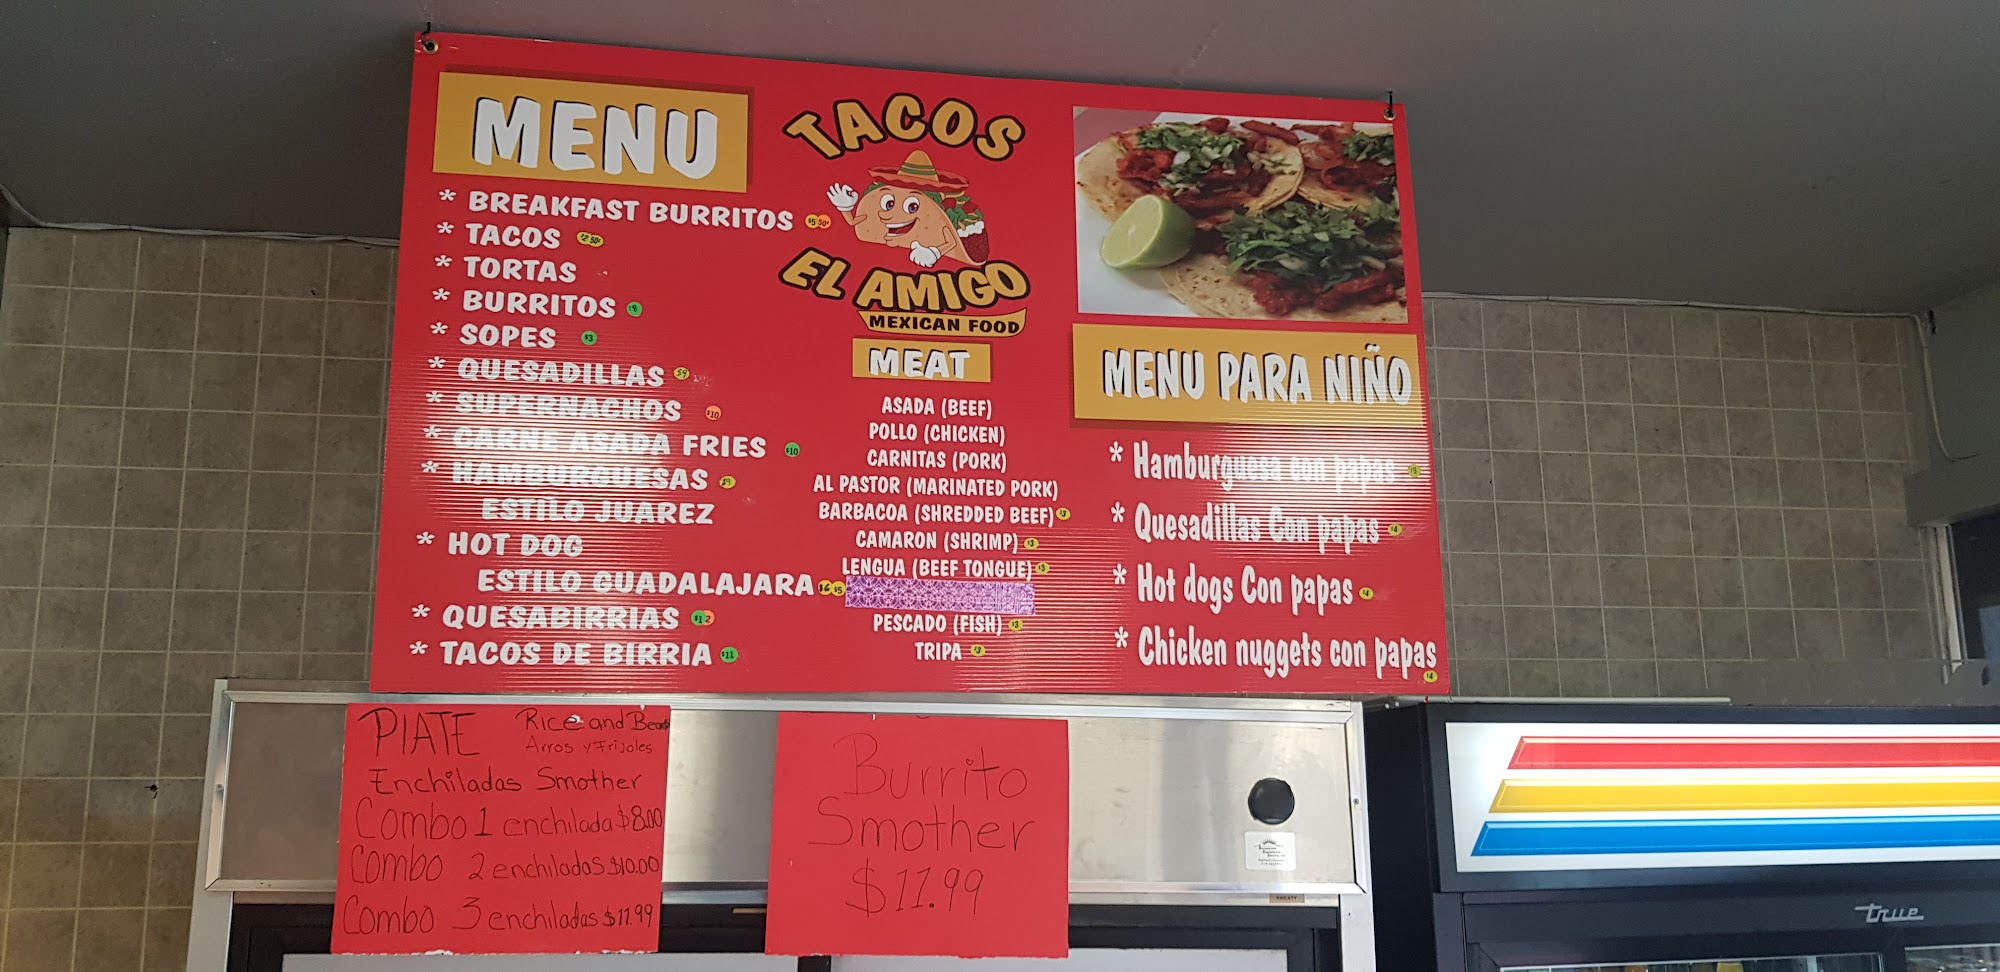 MENU
* BREAKFAST BURRITOS $5.50¢
* TACOS $2.50¢
* TORTAS
* BURRITOS
* SOPES $3
* QUESADILLAS $9
* SUPERNACHOS $10
* CARNE ASADA FRIES $10
* HAMBURGUESAS $9
ESTILO JUAREZ
* HOT DOG
ESTILO GUADALAJARA $6 $5
* QUESABIRRIAS $12
* TACOS DE BIRRIA $11
TACOS
EL AMIGO
MEXICAN FOOD
MEAT
ASADA (BEEF)
POLLO (CHICKEN)
CARNITAS (PORK)
AL PASTOR (MARINATED PORK)
BARBACOA (SHREDDED BEEF) $3
CAMARON (SHRIMP) $3
LENGUA (BEEF TONGUE) $3
PESCADO (FISH) $3
TRIPA $3
MENU PARA NIÑO
* Hamburguesa con papas
* Quesadillas Con papas $4
* Hot dogs Con papas $4
* Chicken nuggets con papas
$4
PlATE Rice and Beans
Arros y Frijoles
Enchiladas Smother
Combo 1 enchilada $8.00
Combo 2 enchiladas $10.00
Combo 3 enchiladas $11.99
Burrito
Smother
$11.99
true